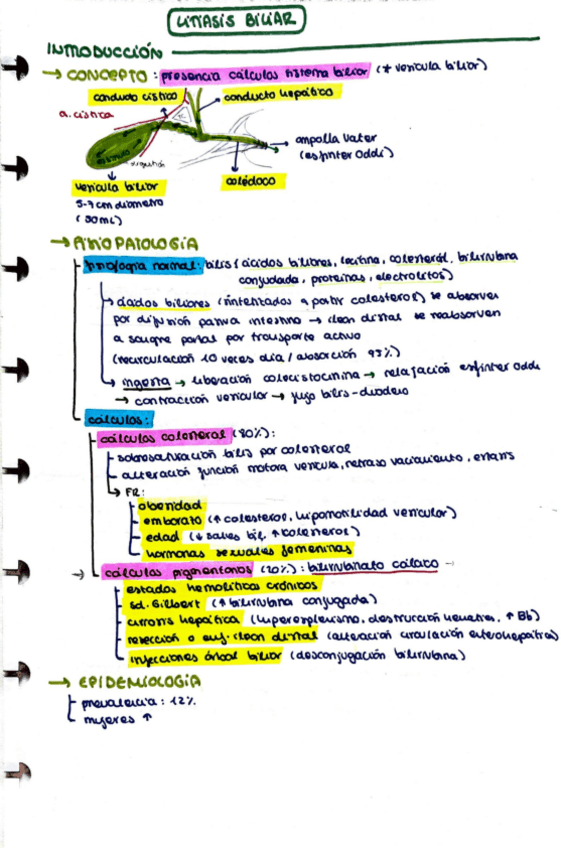 LITIASIS BILIAR
INTRODUCCIÓN
→ CONCEPTO: presencia cálculos sistema biliar (* vesícula biliar)
conducto cístico
conducto hepático
a. cística
ampolla Vater
(esfínter Oddi)
colédoco
vesícula biliar
5-9 cm diámetro
(50mL)
→ FISIOPATOLOGÍA
fisiología normal: bilis (ácidos biliares, lecitina, colesterol, bilirrubina
conjudada, proteínas, electrolitos)
ácidos biliares (sintetizados a partir colesterol) se absorven
por difusión pasiva intestino → íleon distal se reabsorven
a sangre portal por transporte activo
(recirculación 10 veces día / absorción 95%)
ingesta → liberación colecistocinina → relajación esfínter Oddi
→ contracción vesicular → flujo bilis-duodeno
cálculos:
cálculos colesterol (80%):
sobresaturación bilis por colesterol
alteración función motora vesícula, retraso vaciamiento, estasis
FR:
obesidad
embarazo (↑ colesterol, hipomotilidad vesicular)
edad (↓ sales bil, ↑ colesterol)
hormonas sexuales femeninas
→ cálculos pigmentarios (20%): bilirrubinato cálcico
estados hemolíticos crónicos
sd. Gilbert (↑ bilirrubina conjugada)
cirrosis hepática (hiperesplenismo, destrucción hematíes, ↑ Bb)
resección o enf. íleon distal (alteración circulación enterohepática)
infecciones árbol biliar (desconjugación bilirrubina)
→ EPIDEMIOLOGÍA
prevalencia: 12%
mujeres ↑